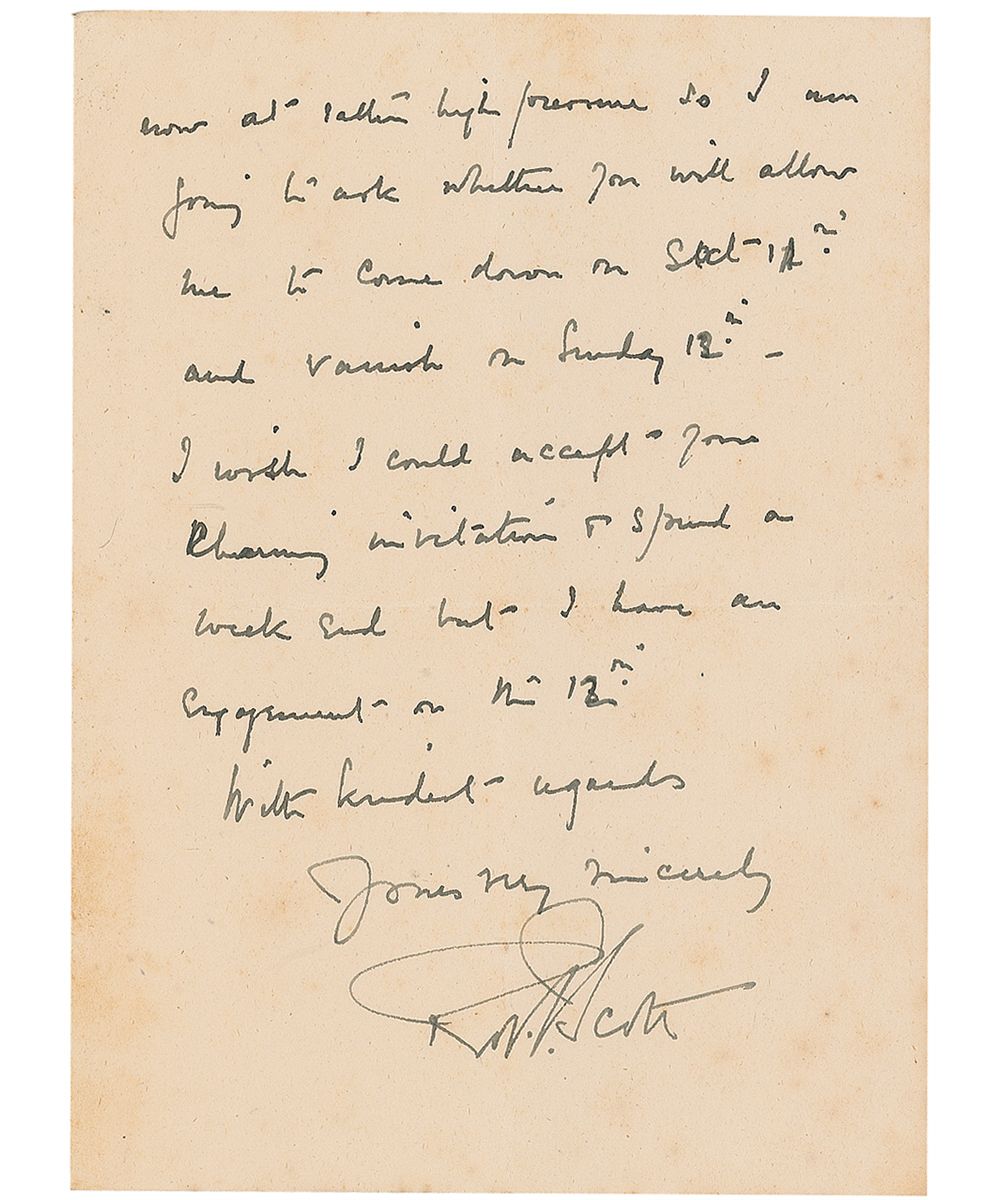 now at rather high pressure so I am
going to ask whether you will allow
me to come down on Sat 11th
and vanish on Sunday 12th –
I wish I could accept your
charming invitation & spend a
week end but I have an
engagement on the 12th
With kindest regards
Yours very sincerely
RobtFScott